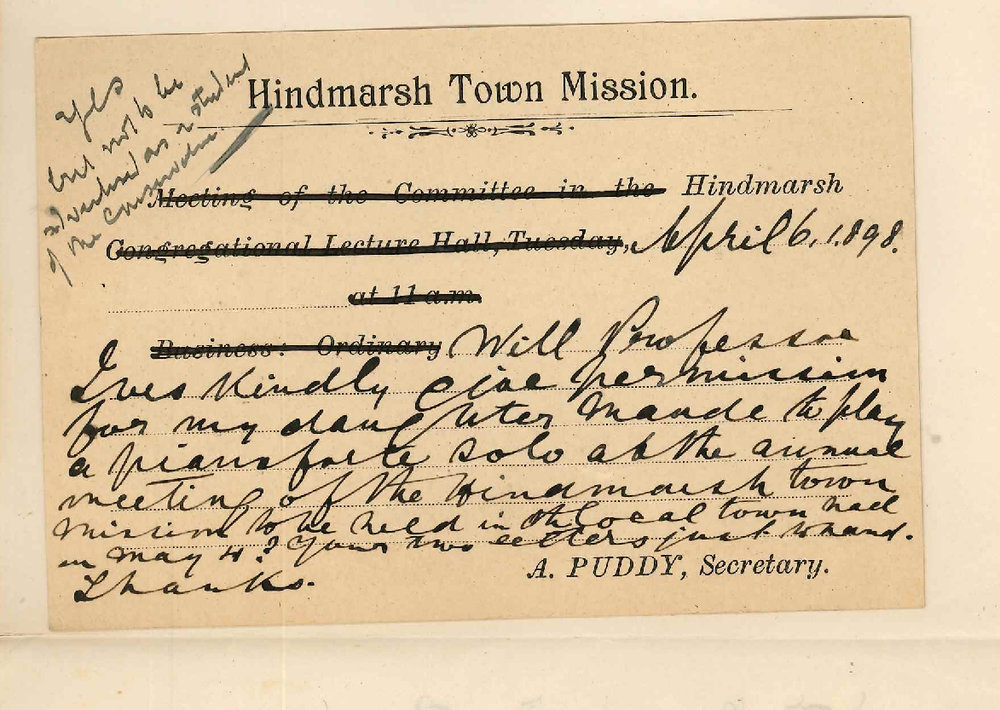 yes
but not to be
advertised as a student
of the Conservatorium
Hindmarsh Town Mission.
Meeting of the Committee in the Hindmarsh
Congregational Lecture Hall, Tuesday, April 6, 1898.
at 11 a.m.
Business: Ordinary Will Professor
Ives kindly give permission
for my daughter Maude to play
a pianoforte solo at the annual
meeting of the Hindmarsh town
mission to be held in the local town hall
on may 4? Your two letters just to hand.
Thanks.
A. PUDDY, Secretary.